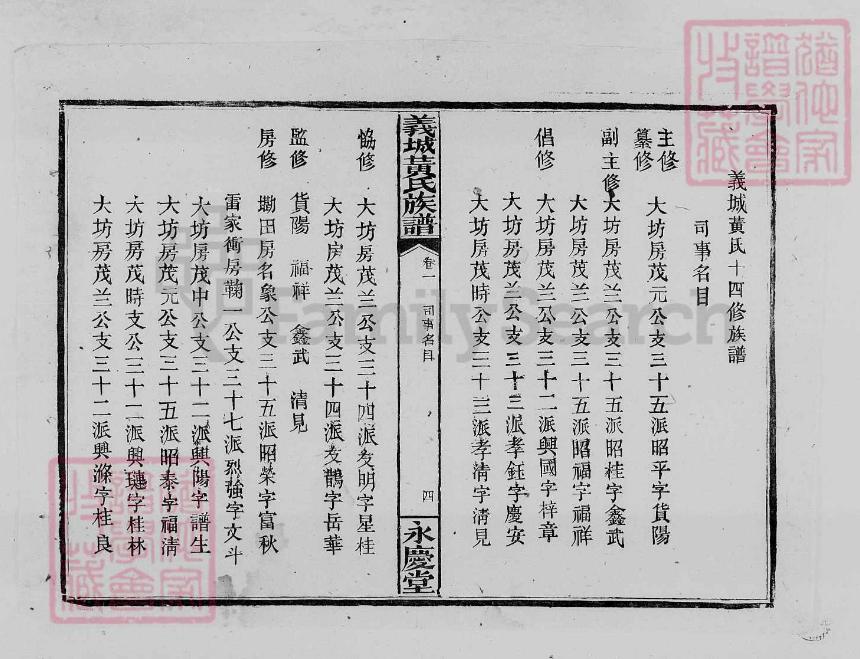 義城黃氏十四修族譜
司事名目
主修
纂修
大坊房茂元公支三十五派昭平字貨陽
副主修
大坊房茂兰公支三十五派昭桂字鑫武
大坊房茂兰公支三十五派昭福字福祥
倡修
大坊房茂兰公支三十二派興國字梓章
大坊房茂兰公支三十三派孝鈺字慶安
大坊房茂時公支三十三派孝清字清見
義城黃氏族譜
卷一
司事名目
四
永慶堂
恊修
大坊房茂兰公支三十四派友明字星桂
大坊房茂兰公支三十四派友鵲字岳華
監修
貨陽 福祥 鑫武 清見
房修
墈田房名象公支三十五派昭榮字富秋
雷家衝房鞠一公支三十七派烈強字文斗
大坊房茂中公支三十二派興陽字譜生
大坊房茂元公支三十五派昭泰字福清
大坊房茂時支公三十二派興璉字桂林
大坊房茂兰公支三十二派興滌字桂良
FamilySearch